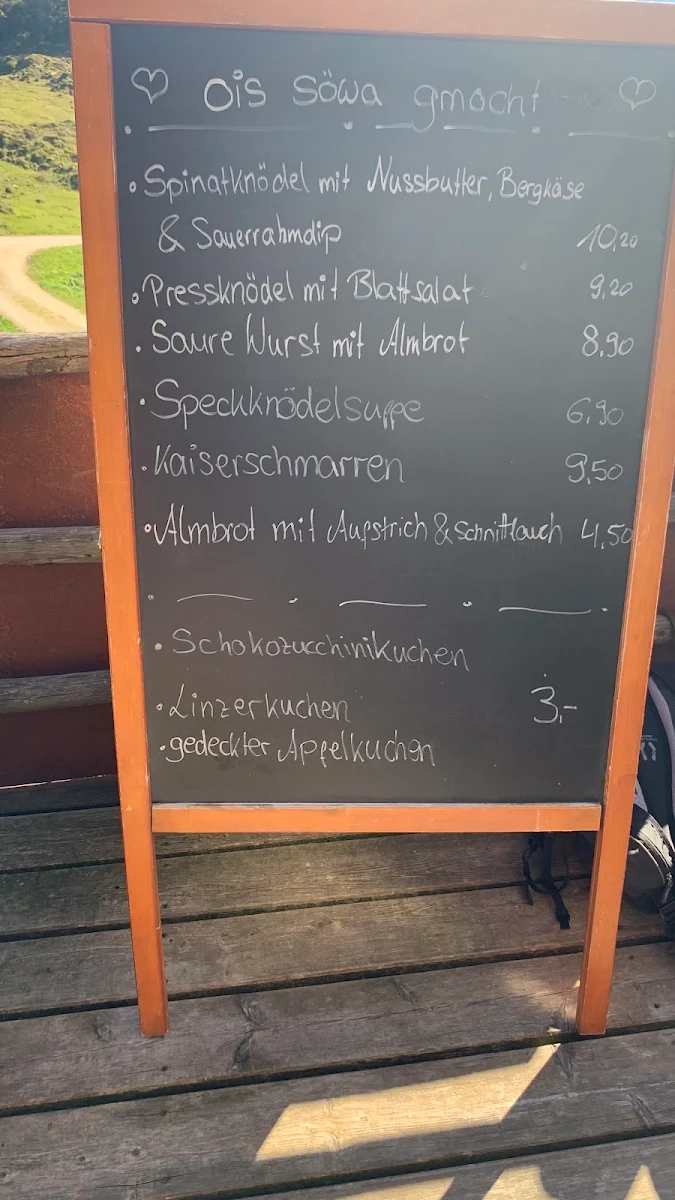 ♡ Ois söwa gmocht ♡
• Spinatknödel mit Nussbutter, Bergkäse
& Sauerrahmdip 10,20
• Pressknödel mit Blattsalat 9,20
• Saure Wurst mit Almbrot 8,90
• Speckknödelsuppe 6,90
• Kaiserschmarren 9,50
• Almbrot mit Aufstrich & Schnittlauch 4,50
• Schokozucchinikuchen
• Linzerkuchen 3,-
• gedeckter Apfelkuchen